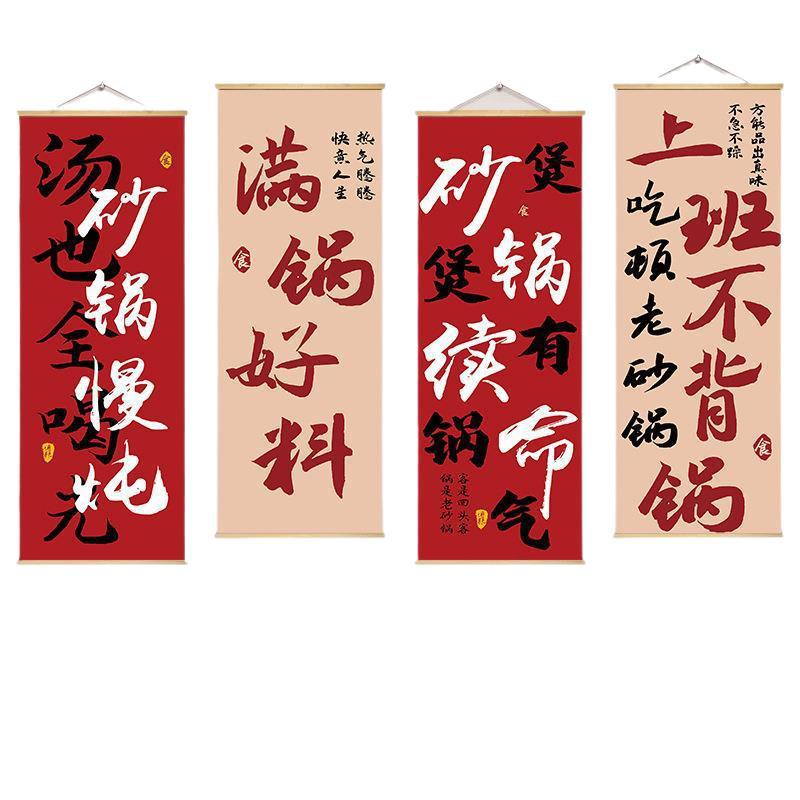 砂锅慢炖
汤也全喝光
食
满锅好料
热气腾腾
快意人生
食
砂锅续命
煲煲有锅气
食
客是回头客
锅是老砂锅
上班不背锅
吃顿老砂锅
方能品出真味
不急不躁
食